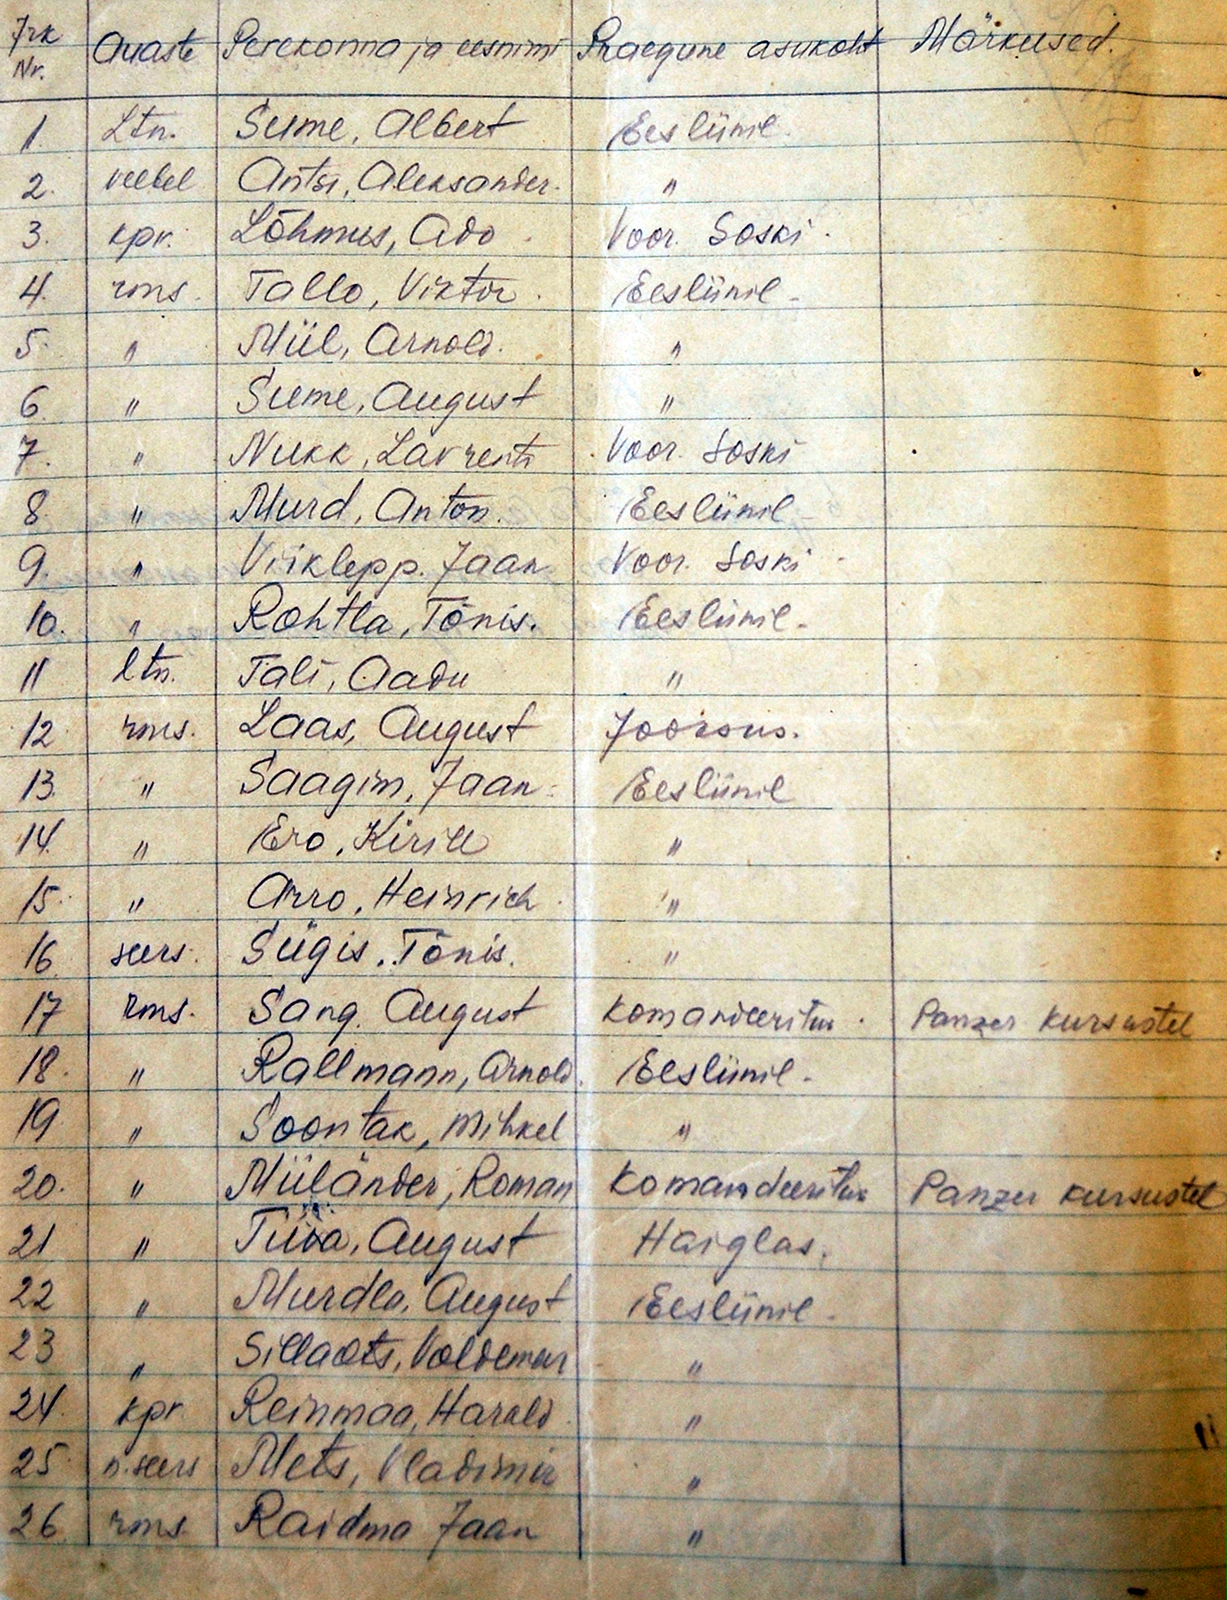 Jrk Nr. Auaste Perekonna ja eesnimi Praegune asukoht Märkused.
1. Ltn. Sume, Albert Eesliinil
2. veebel Antsi, Aleksander. "
3. kpr. Lõhmus, Ado. Voor. Soski.
4. rms. Tallo, Viktor. Eesliinil -
5. " Miil, Arnold. "
6. " Sume, August "
7. " Nukk, Lavrenti Voor. Soski
8. " Murd, Anton. Eesliinil
9. " Viiklepp. Jaan Voor. Soski
10. " Rohtla, Tõnis. Eesliinil -
11 ltn. Tali, Aadu "
12 rms. Laas, August
13. " Saagim, Jaan Eesliinil
14. " Ero, Kirill "
15. " Arro, Heinrich "
16 seers. Sügis. Tõnis. "
17 rms. Sang. August Komandeeritus. Panzer kursustel
18. " Rallmann, Arnold. Eesliinil.
19 " Soontak, Mihkel "
20. " Miiländer, Roman Komandeeritus Panzer kursustel
21 " August Haiglas.
22 " Murdla, August Eesliinil -
23 " Sillaots, Voldemar "
24. kpr Reinmaa, Harald. "
25. n.seers Mets, Vladimir "
26. rms Raidma Jaan "